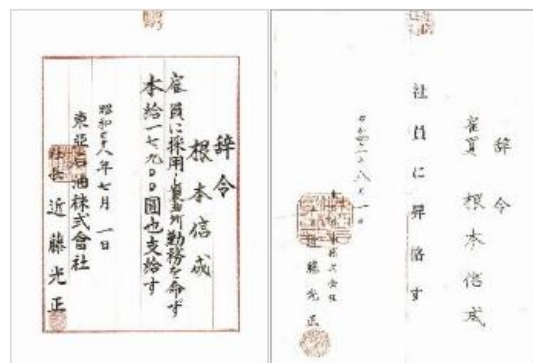 辞令
根本信成
雇員に採用し製油所勤務を命ず
本給一七九〇〇圓也支給す
昭和 八年七月一日
東亞石油株式會社
社長 近藤光正
辞令
雇員 根本信成
社員に昇格す
八 一日
株式会社
藤光正